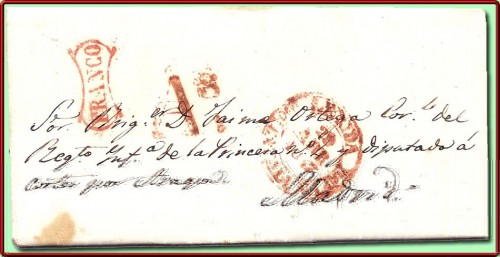 FRANCO
1Rs
Sor. Briger. D. Jaime Ortega Cor.l del
Regto Infa. de la Princesa nº 4 y diputado á
cortes por Aragon
Madrid